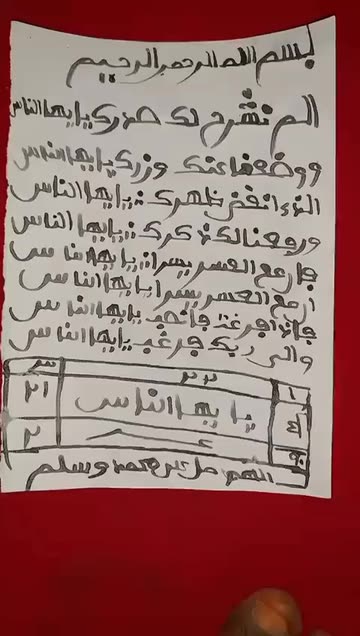 بسم الله الرحمن الرحيم
الم نشرح لك صدرك يا يها الناس
ووضعنا عنك وزرك يا يها الناس
الذي انقض ظهرك يا يها الناس
ورفعنا لك ذكرك يا يها الناس
فان مع العسر يسرا يا يها الناس
ان مع العسر يسرا يا يها الناس
فاذا فرغت فانصب يا يها الناس
والى ربك فرغب يا يها الناس
يا يها الناس
٢١
٢
اللهم صل على محمد وسلم